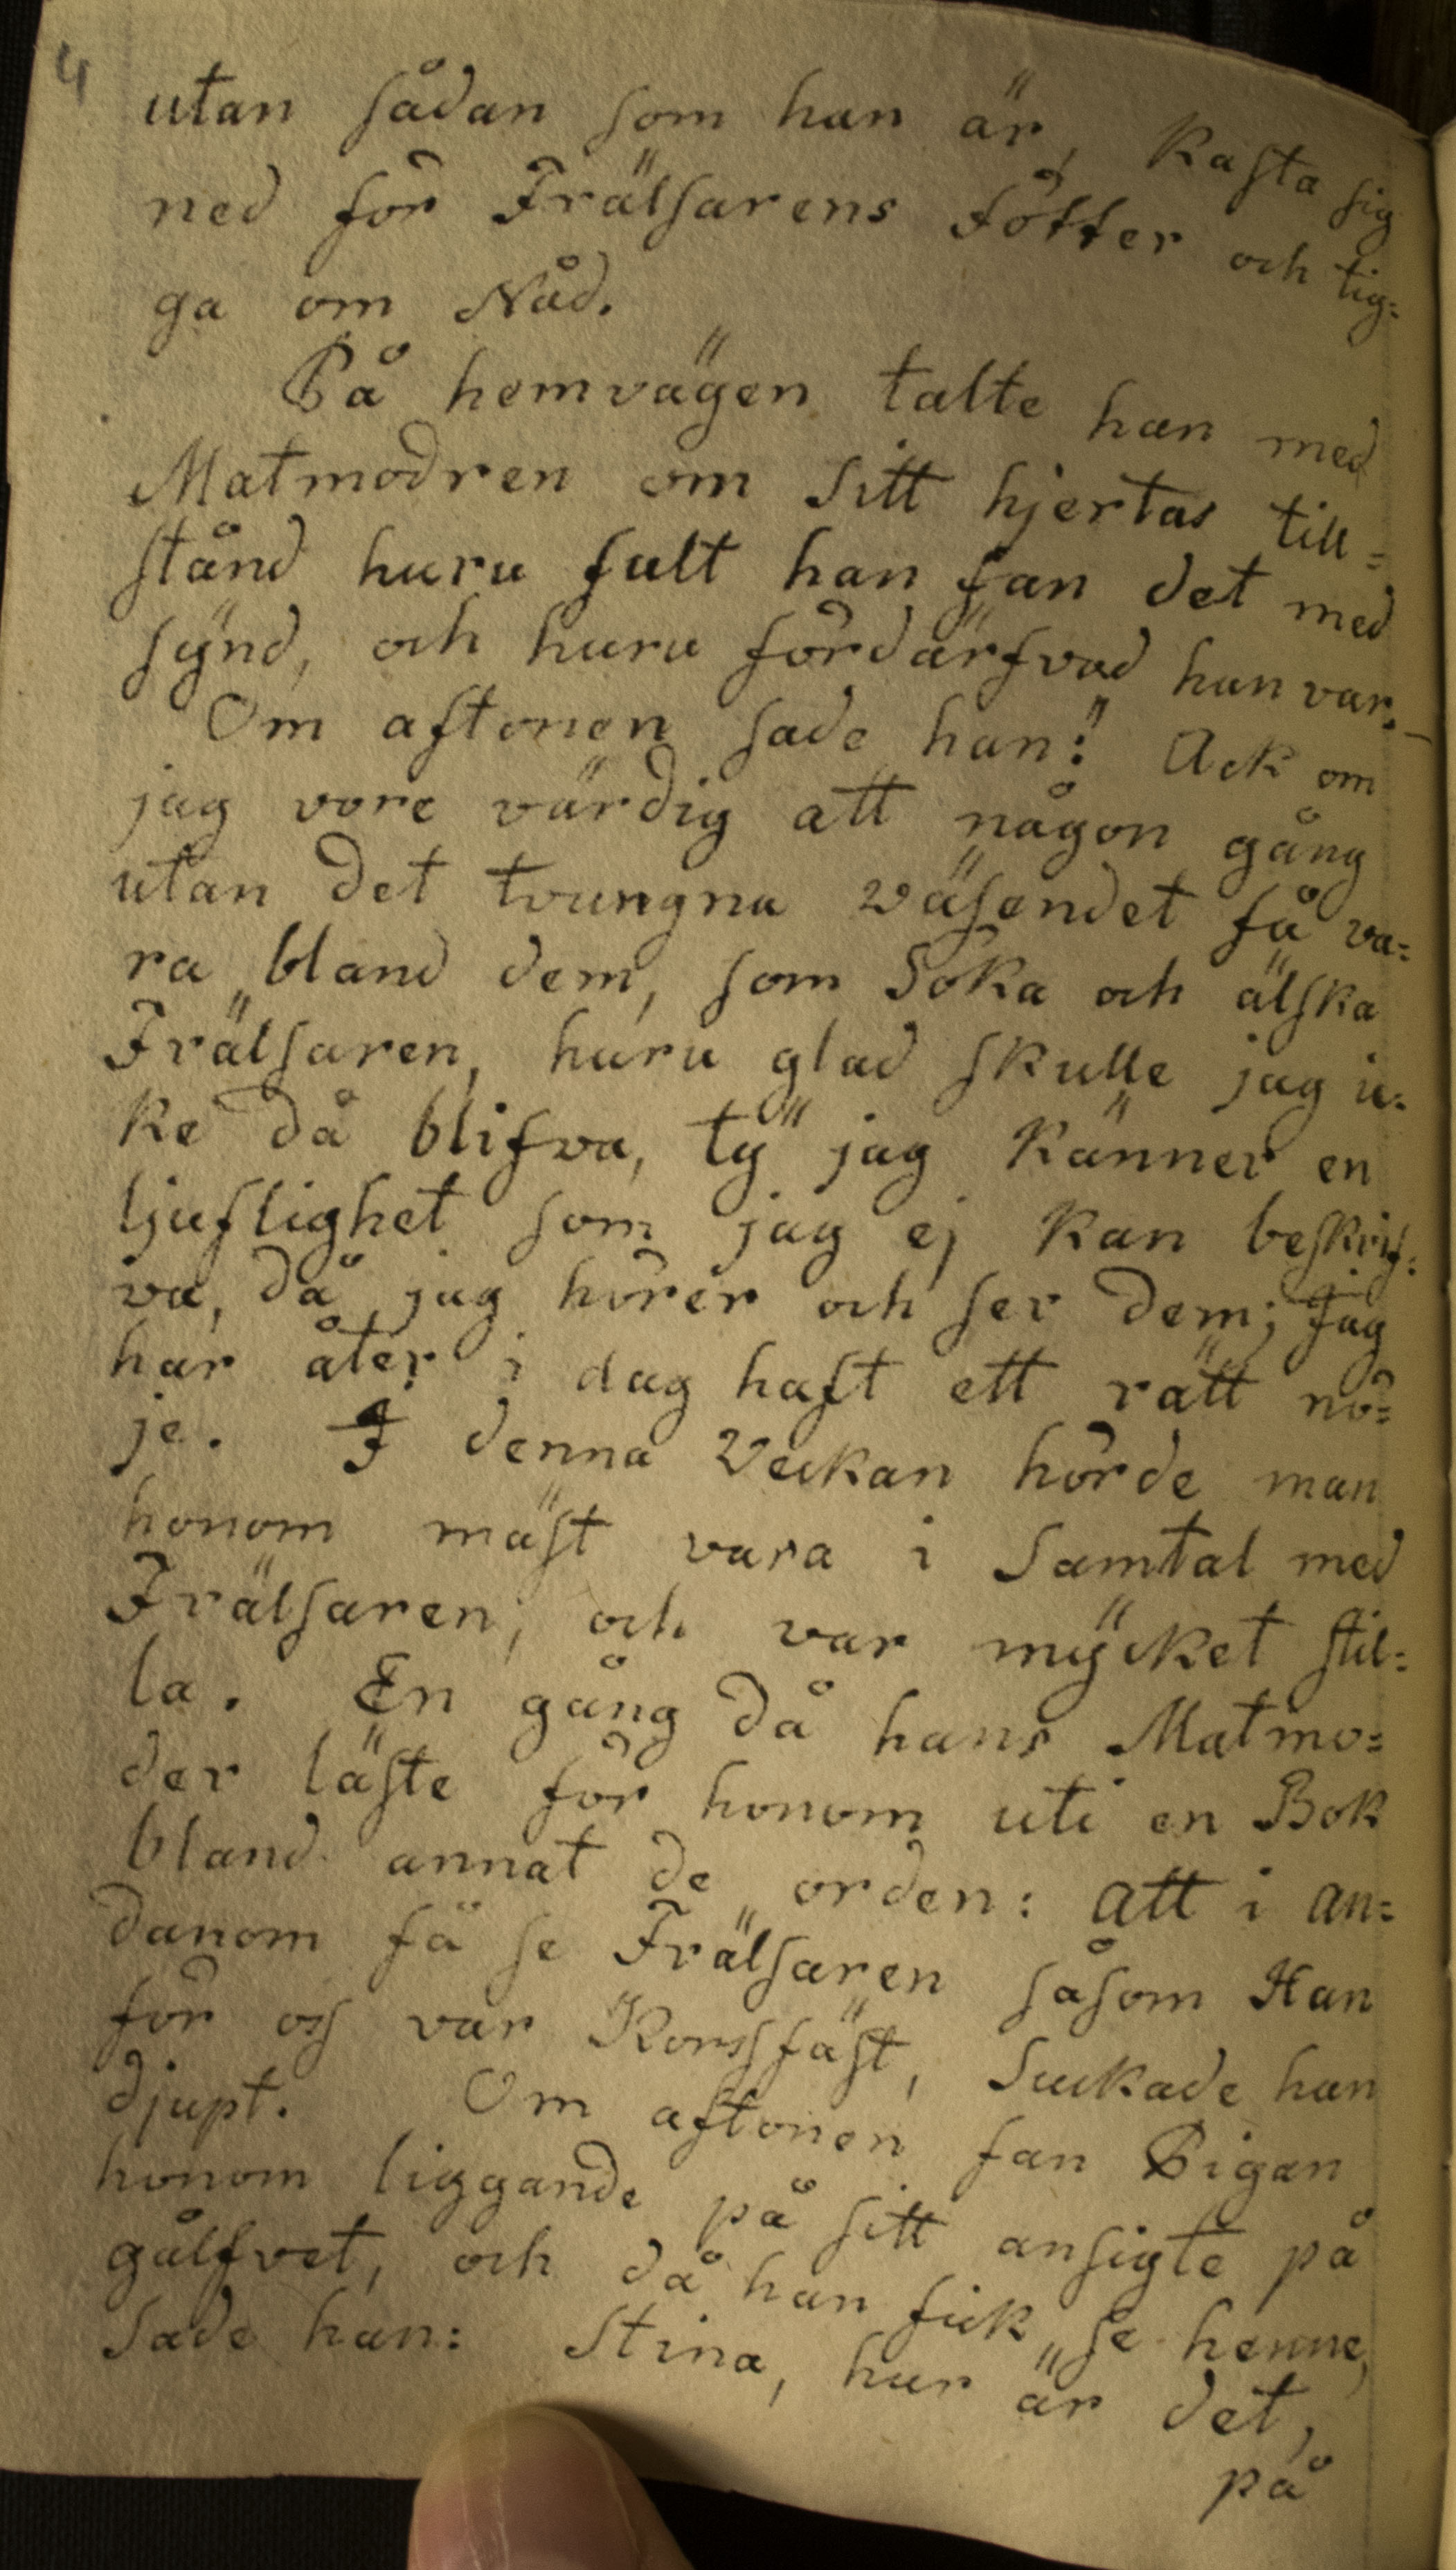 4
utan sådan som han är, kasta sig
ned för Frälsarens Fötter och tig=
ga om Nåd.
På hemvägen talte han med
Matmodren om sitt hjertas till=
stånd huru fult han fan det med
synd, och huru fördärfvad han var.
Om aftonen sade han: Ack om
jag vore värdig att någon gång
utan det tvungna väsendet få va=
ra bland dem, som söka och älska
Frälsaren, huru glad skulle jag ic=
ke då blifva, ty jag känner en
ljuflighet som jag ej kan beskrif=
va, då jag hörer och ser dem; Jag
har åter i dag haft ett rätt nö=
je. I denna Veckan hörde man
honom mäst vara i Samtal med
Frälsaren, och var mycket stil=
la. En gång då hans Matmo=
der läste för honom uti en Bok
bland annat de orden: att i an=
danom få se Frälsaren såsom Han
för oss var Korssfäst, suckade han
djupt. Om aftonen fan Pigan
honom liggande på sitt ansigte på
gålfvet, och då han fick se henne,
sade han: Stina, hur är det,
på